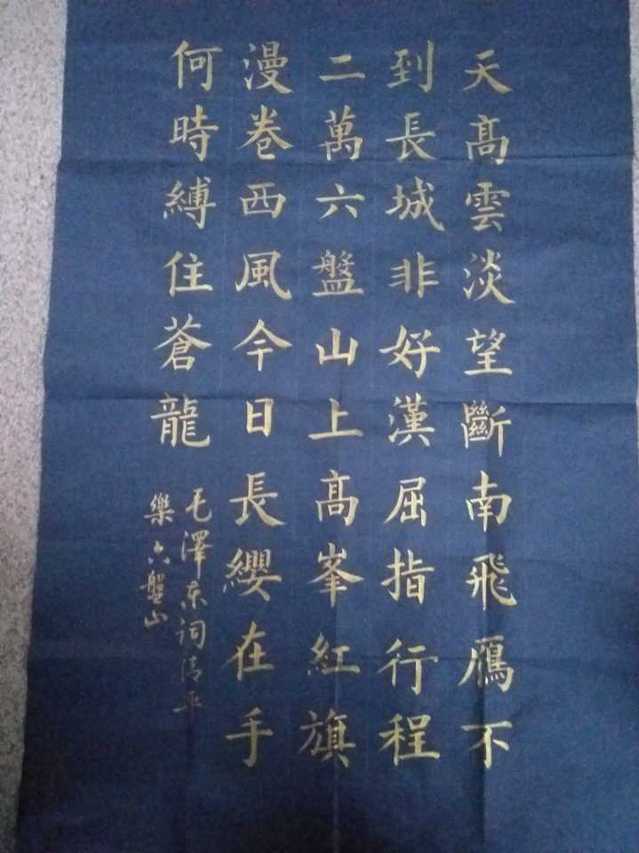 天高雲淡望斷南飛鴈不
到長城非好漢屈指行程
二萬六盤山上高峯紅旗
漫卷西風今日長纓在手
何時縛住蒼龍
毛澤东词清平
樂六盤山